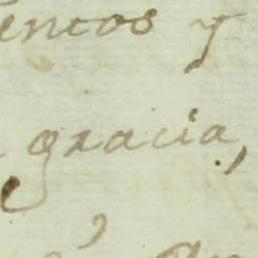 encos y
gracia,